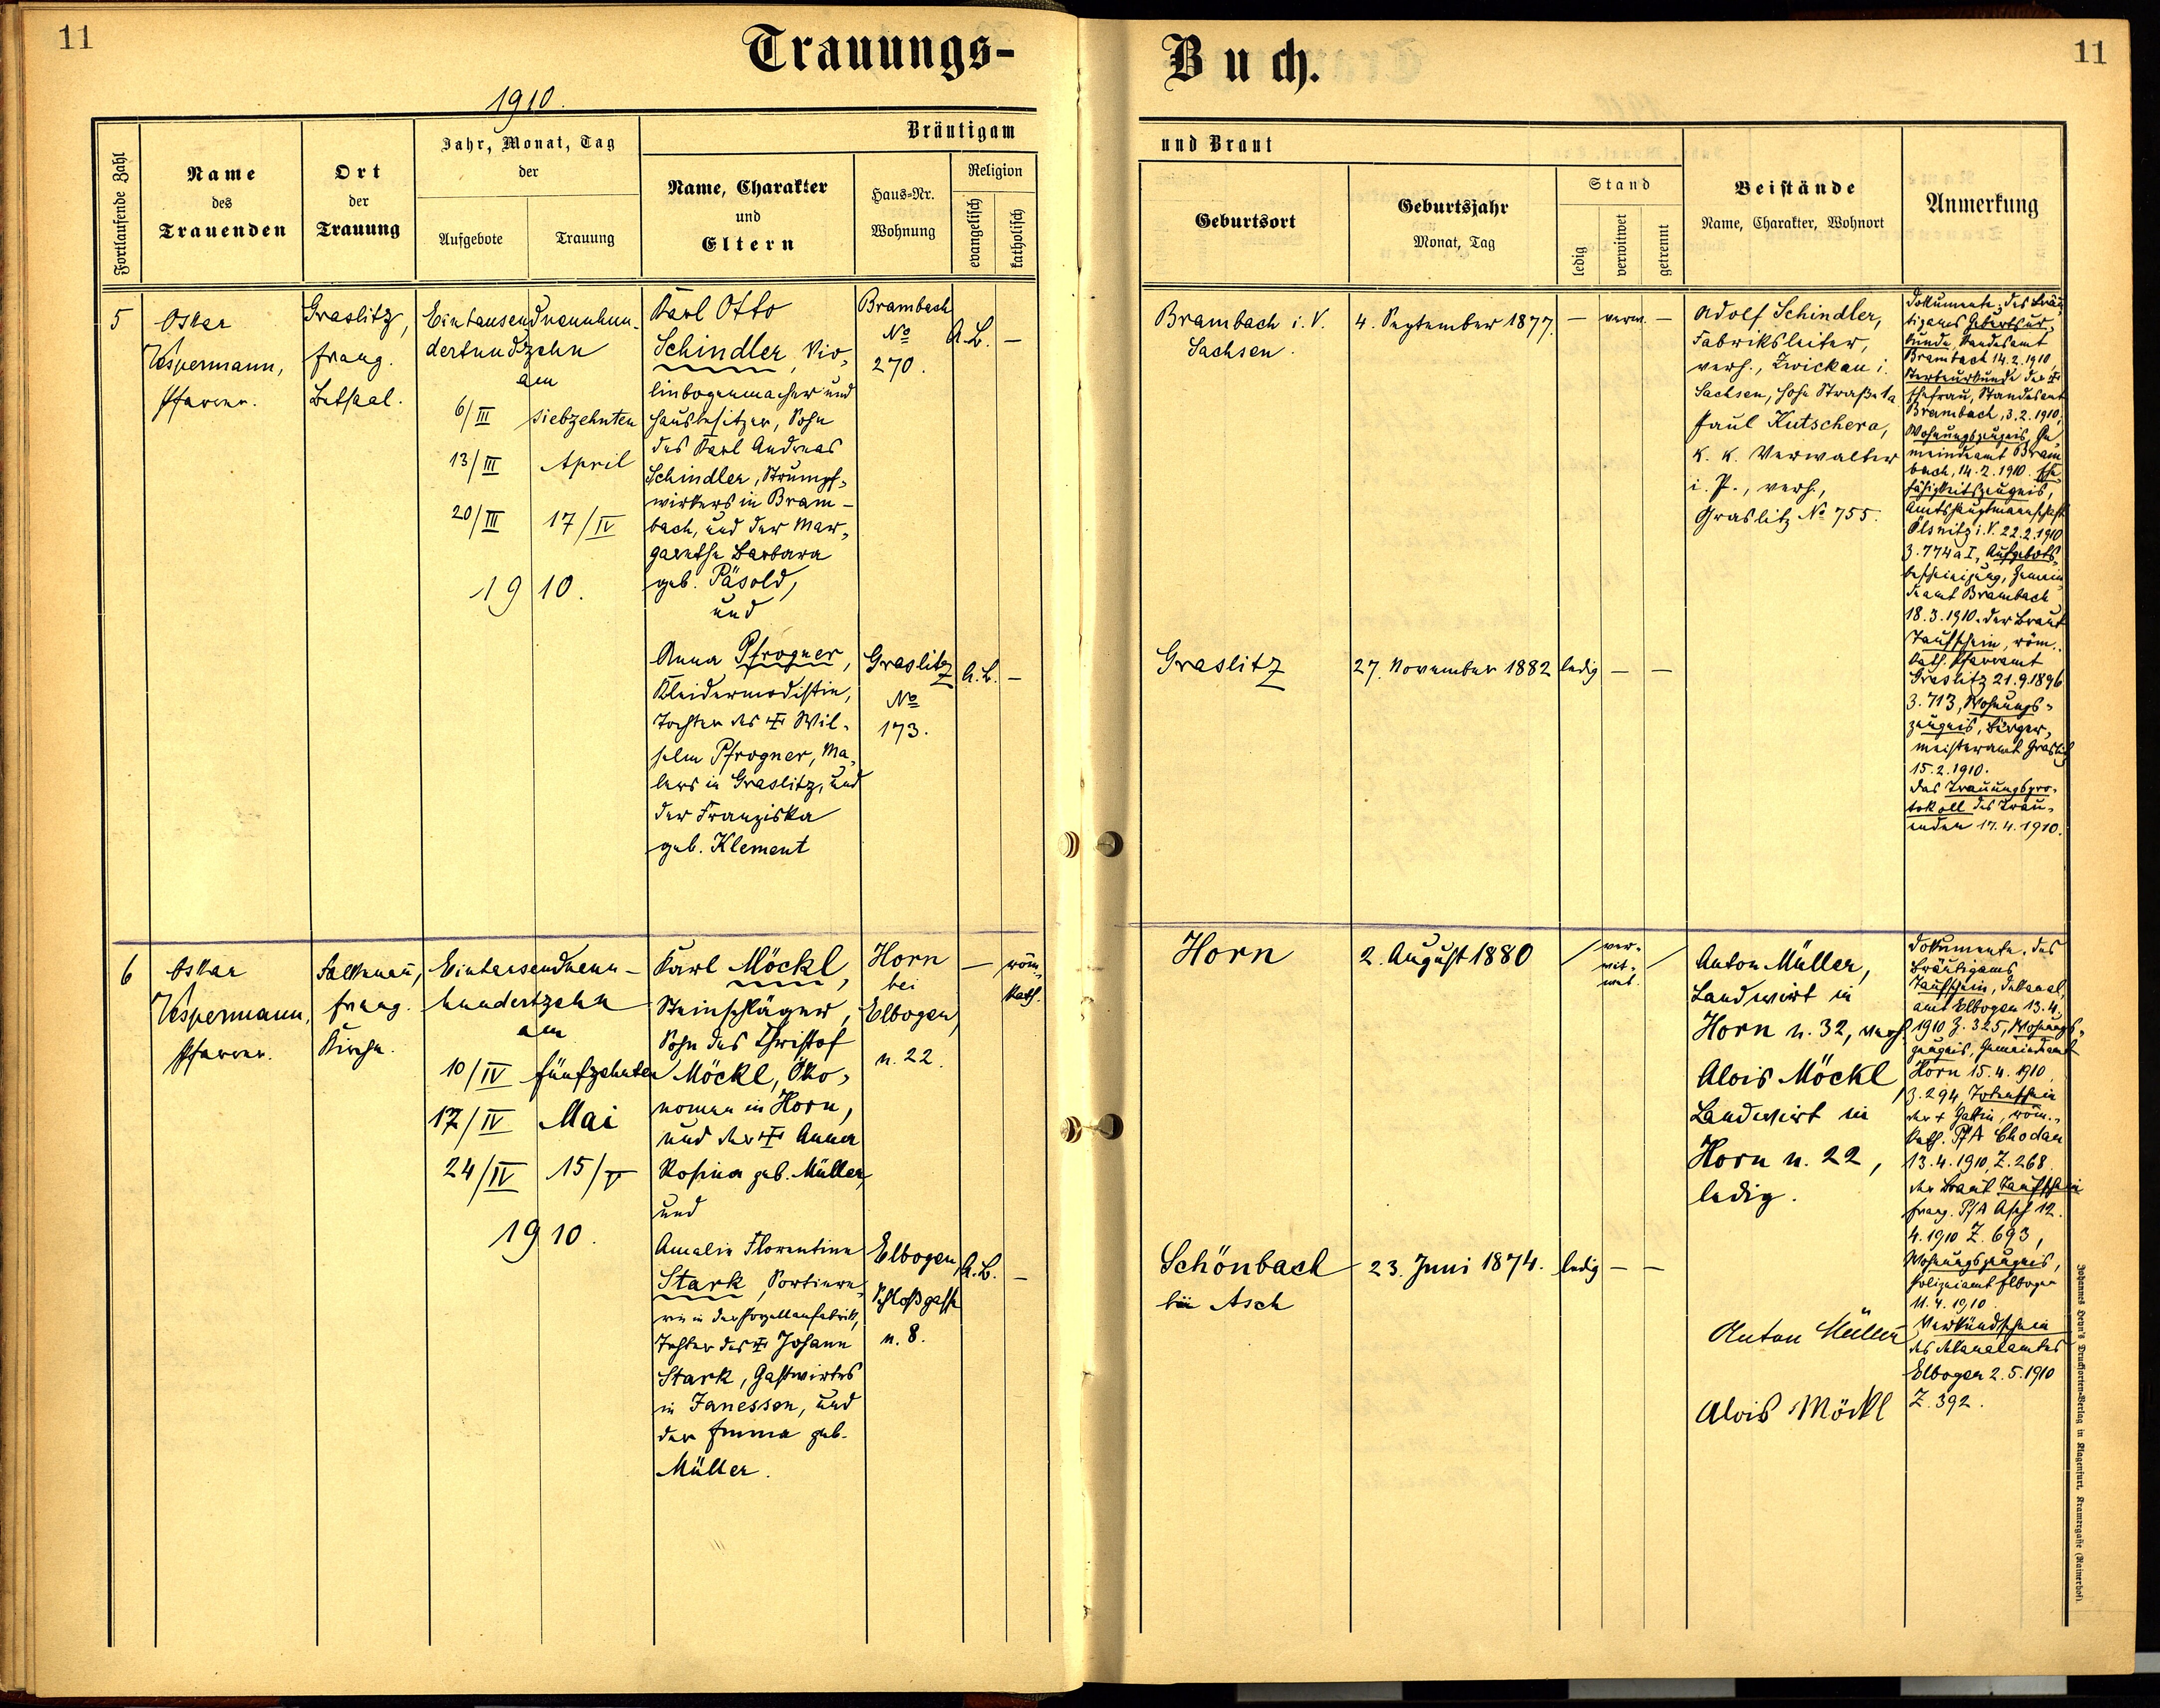 11
Trauungs-
Buch.
11
1910.
Fortlaufende Zahl
Name
des
Trauenden
Ort
der
Trauung
Jahr, Monat, Tag
der
Aufgebote
Trauung
Bräutigam
Name, Charakter
und
Eltern
Haus-Nr.
Wohnung
Religion
evangelisch
katholisch
und Braut
Geburtsort
Geburtsjahr
Monat, Tag
Stand
ledig
verwitwet
getrennt
Beistände
Name, Charakter, Wohnort
Anmerkung
5
Oskar
Vespermann,
Pfarrer.
Graslitz,
evang.
Betsaal.
Eintausendneunhun-
dertundzehn
am
6/III siebzehnten
13/III April
20/III 17/IV
1910.
Karl Otto
Schindler, Vio-
linbogenmacher und
Hausbesitzer, Sohn
des Karl Andreas
Schindler, Strumpf-
wirkers in Bram-
bach, und der Mar-
garethe Barbara
geb. Päsold,
und
Anna Pfrogner,
Kleidermodistin,
Tochter des † Wil-
helm Pfrogner, Ma-
lers in Graslitz, und
der Franziska
geb. Klement
Brambach
No
270.
A.B. —
Graslitz
No
173.
A.B. —
Brambach i. V.
Sachsen.
4. September 1877.
— verw. —
Graslitz
27. November 1882
ledig — —
Adolf Schindler,
Fabriksleiter,
verh., Zwickau i.
Sachsen, Hohe Straße 1a
Paul Kutschera,
k. k. Verwalter
i. P., verh.,
Graslitz No 755.
Dokumente: des Bräu-
tigams Geburtsur-
kunde, Standesamt
Brambach 14.2.1910,
Sterbeurkunde der †
Ehefrau, Standesamt
Brambach, 3.2.1910,
Wohnungszeugnis, Ge-
meindeamt Bram-
bach, 14.2.1910. Ehe-
fähigkeitszeugnis,
Amtshauptmannschaft
Ölsnitz i. V. 22.2.1910
3.774a I, Aufgebots-
bescheinigung, Gemein-
deamt Brambach
18.3.1910. der Braut
Taufschein, röm.
kath. Pfarramt
Graslitz 21.9.1896
3.713, Wohnungs-
zeugnis, Bürger-
meisteramt Graslitz
15.2.1910.
das Trauungspro-
tokoll des Trau-
enden 17.4.1910.
6
Oskar
Vespermann,
Pfarrer.
Falkenau,
evang.
Kirche.
Eintausendneun-
hundertzehn
am
10/IV fünfzehnten
17/IV Mai
24/IV 15/V
1910.
Karl Möckl,
Steinschläger,
Sohn des Christof
Möckl, Öko-
nomen in Horn,
und der † Anna
Rosina geb. Müller
und
Amalie Florentine
Stark, Sortiere-
rin in der Porzellanfabrik,
Tochter des † Johann
Stark, Gastwirtes
in Janessen, und
der Emma geb.
Müller.
Horn
bei
Elbogen,
n. 22.
— röm.
kath.
Elbogen,
Schloßgasse
n. 8.
A.B. —
Horn
2. August 1880
ver-
wit-
wet.
Schönbach
bei Asch
23. Juni 1874.
ledig — —
Anton Müller,
Landwirt in
Horn n. 32, verh.
Alois Möckl,
Landwirt in
Horn n. 22,
ledig.
Anton Müller
Alois Möckl
Dokumente. des
Bräutigams
Taufschein, Dekanal-
amt Elbogen 13.4.
1910 Z. 325, Wohnungs-
zeugnis, Gemeindeamt
Horn 15.4.1910,
3.294, Totenschein
der † Gattin, röm.-
kath. PfA Chodau
13.4.1910, Z. 268.
der Braut Taufschein
evang. PfA Asch 12.
4.1910 Z. 693,
Wohnungszeugnis,
Polizeiamt Elbogen
11.4.1910.
Verkündschein
des Dekanalamtes
Elbogen 2.5.1910
Z. 392.
Johannes Heyn's Drucksorten-Verlag in Klagenfurt, Kramergasse (Rainerhof).